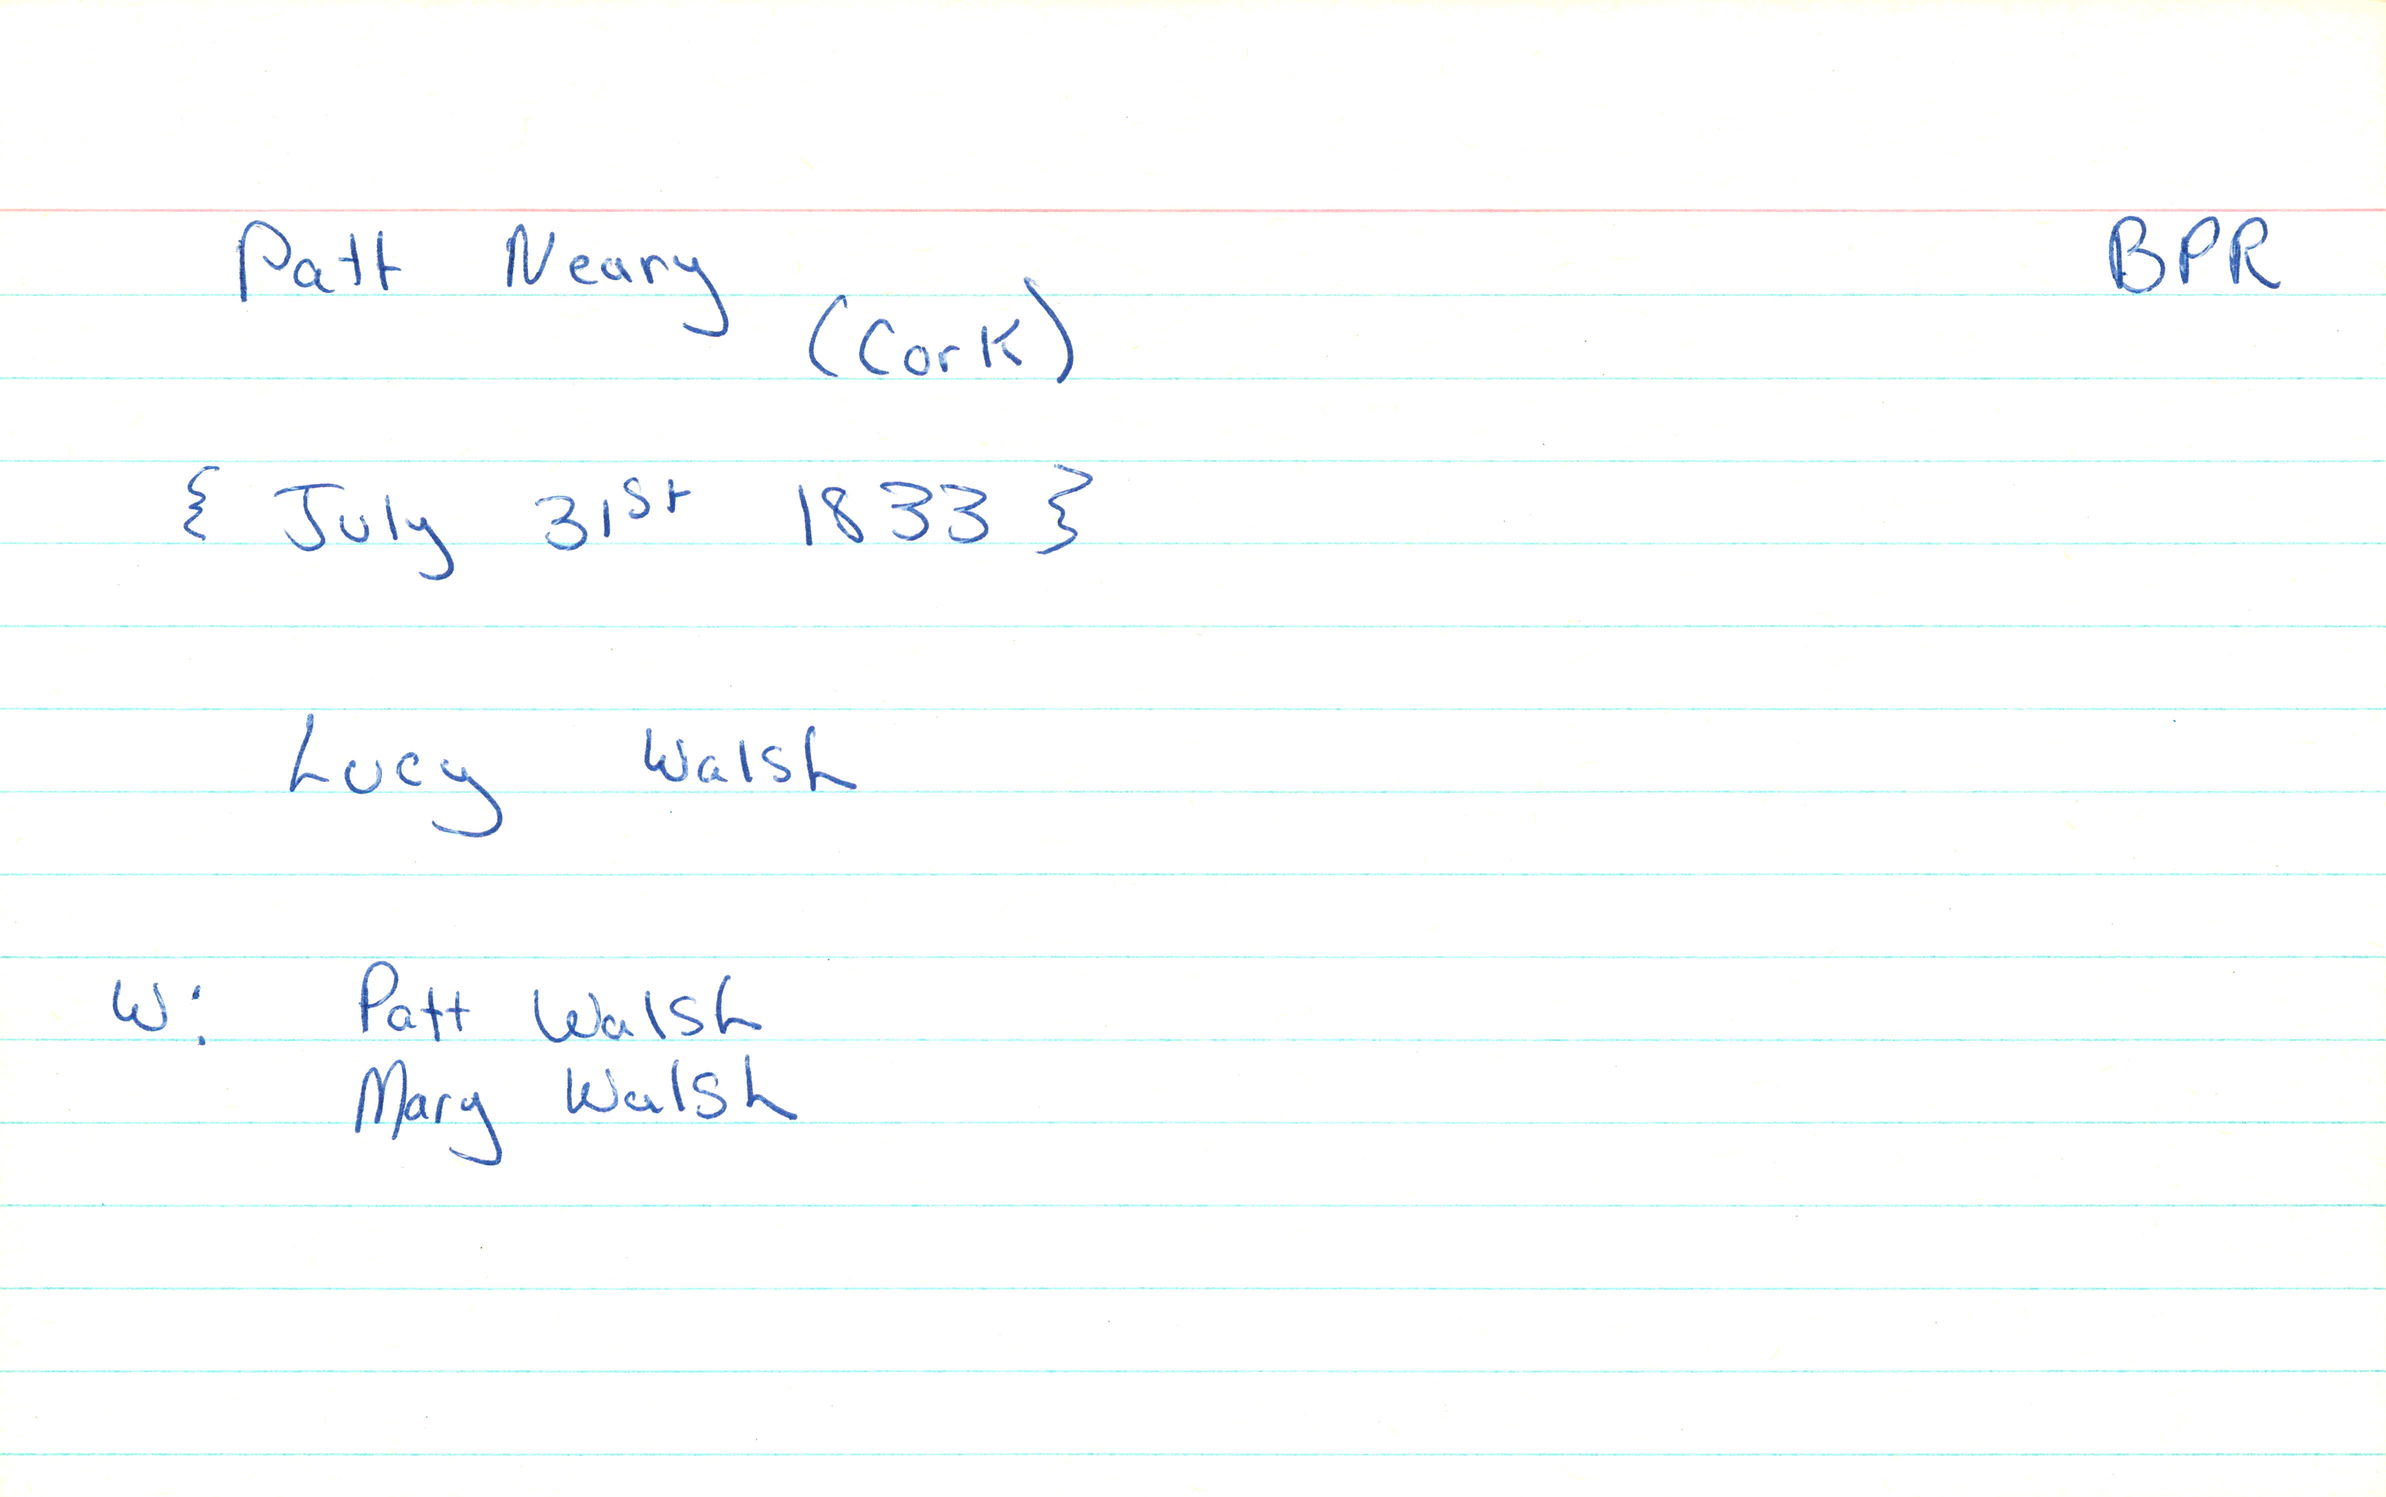 Patt Neary BPR
(Cork)
{ July 31st 1833 }
Lucy Walsh
W: Patt Walsh
Mary Walsh